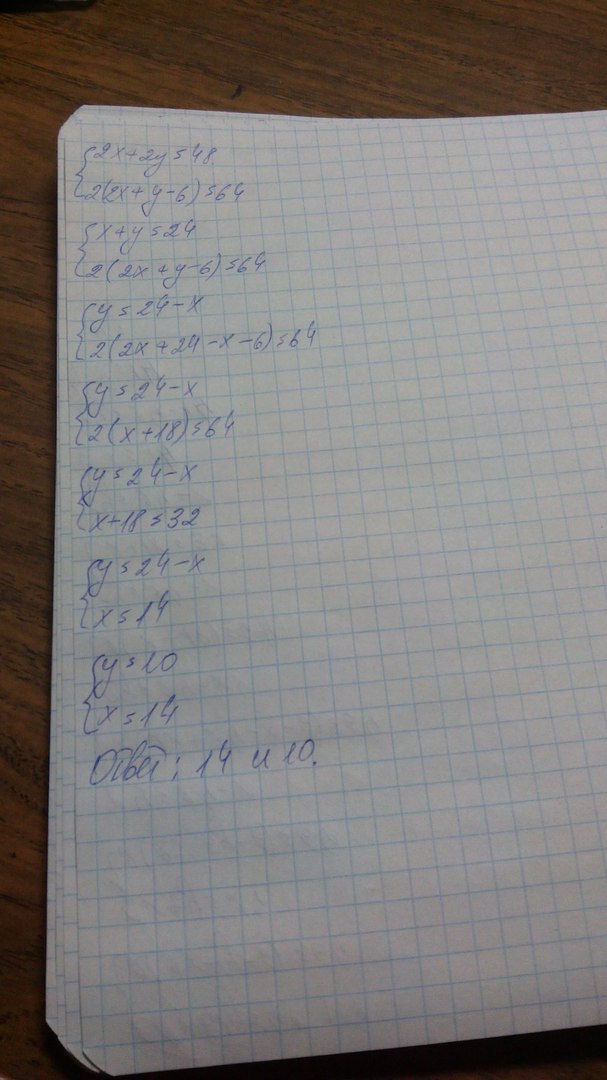 {2x+2y=48.
{2(2x+y-6)=64
{x+y=24
{2(2x+y-6)=64
{y=24-x
{2(2x+24-x-6)=64
{y=24-x
{2(x+18)=64
{y=24-x
{x+18=32
{y=24-x
{x=14
{y=10
{x=14
Ответ: 14 и 10.